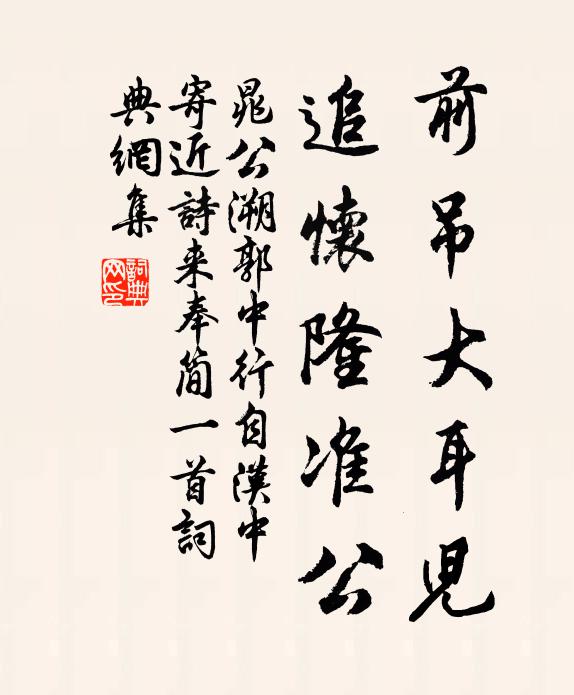 前吊大耳児
追懷隆准公
晁公溯郭中行自漢中
寄近詩来奉简一首詞
典網集
詞典网印